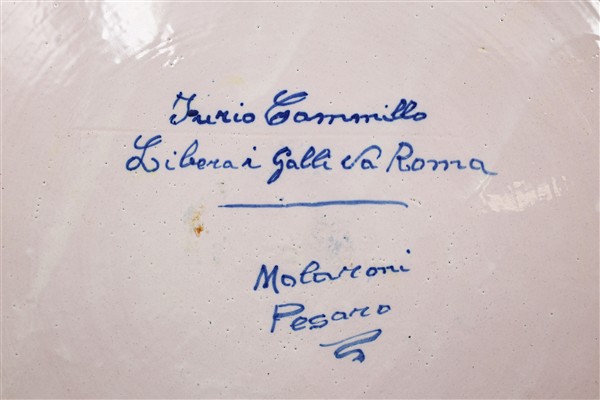 Furio Cammillo
Libera i Galli da Roma
Molaroni
Pesaro